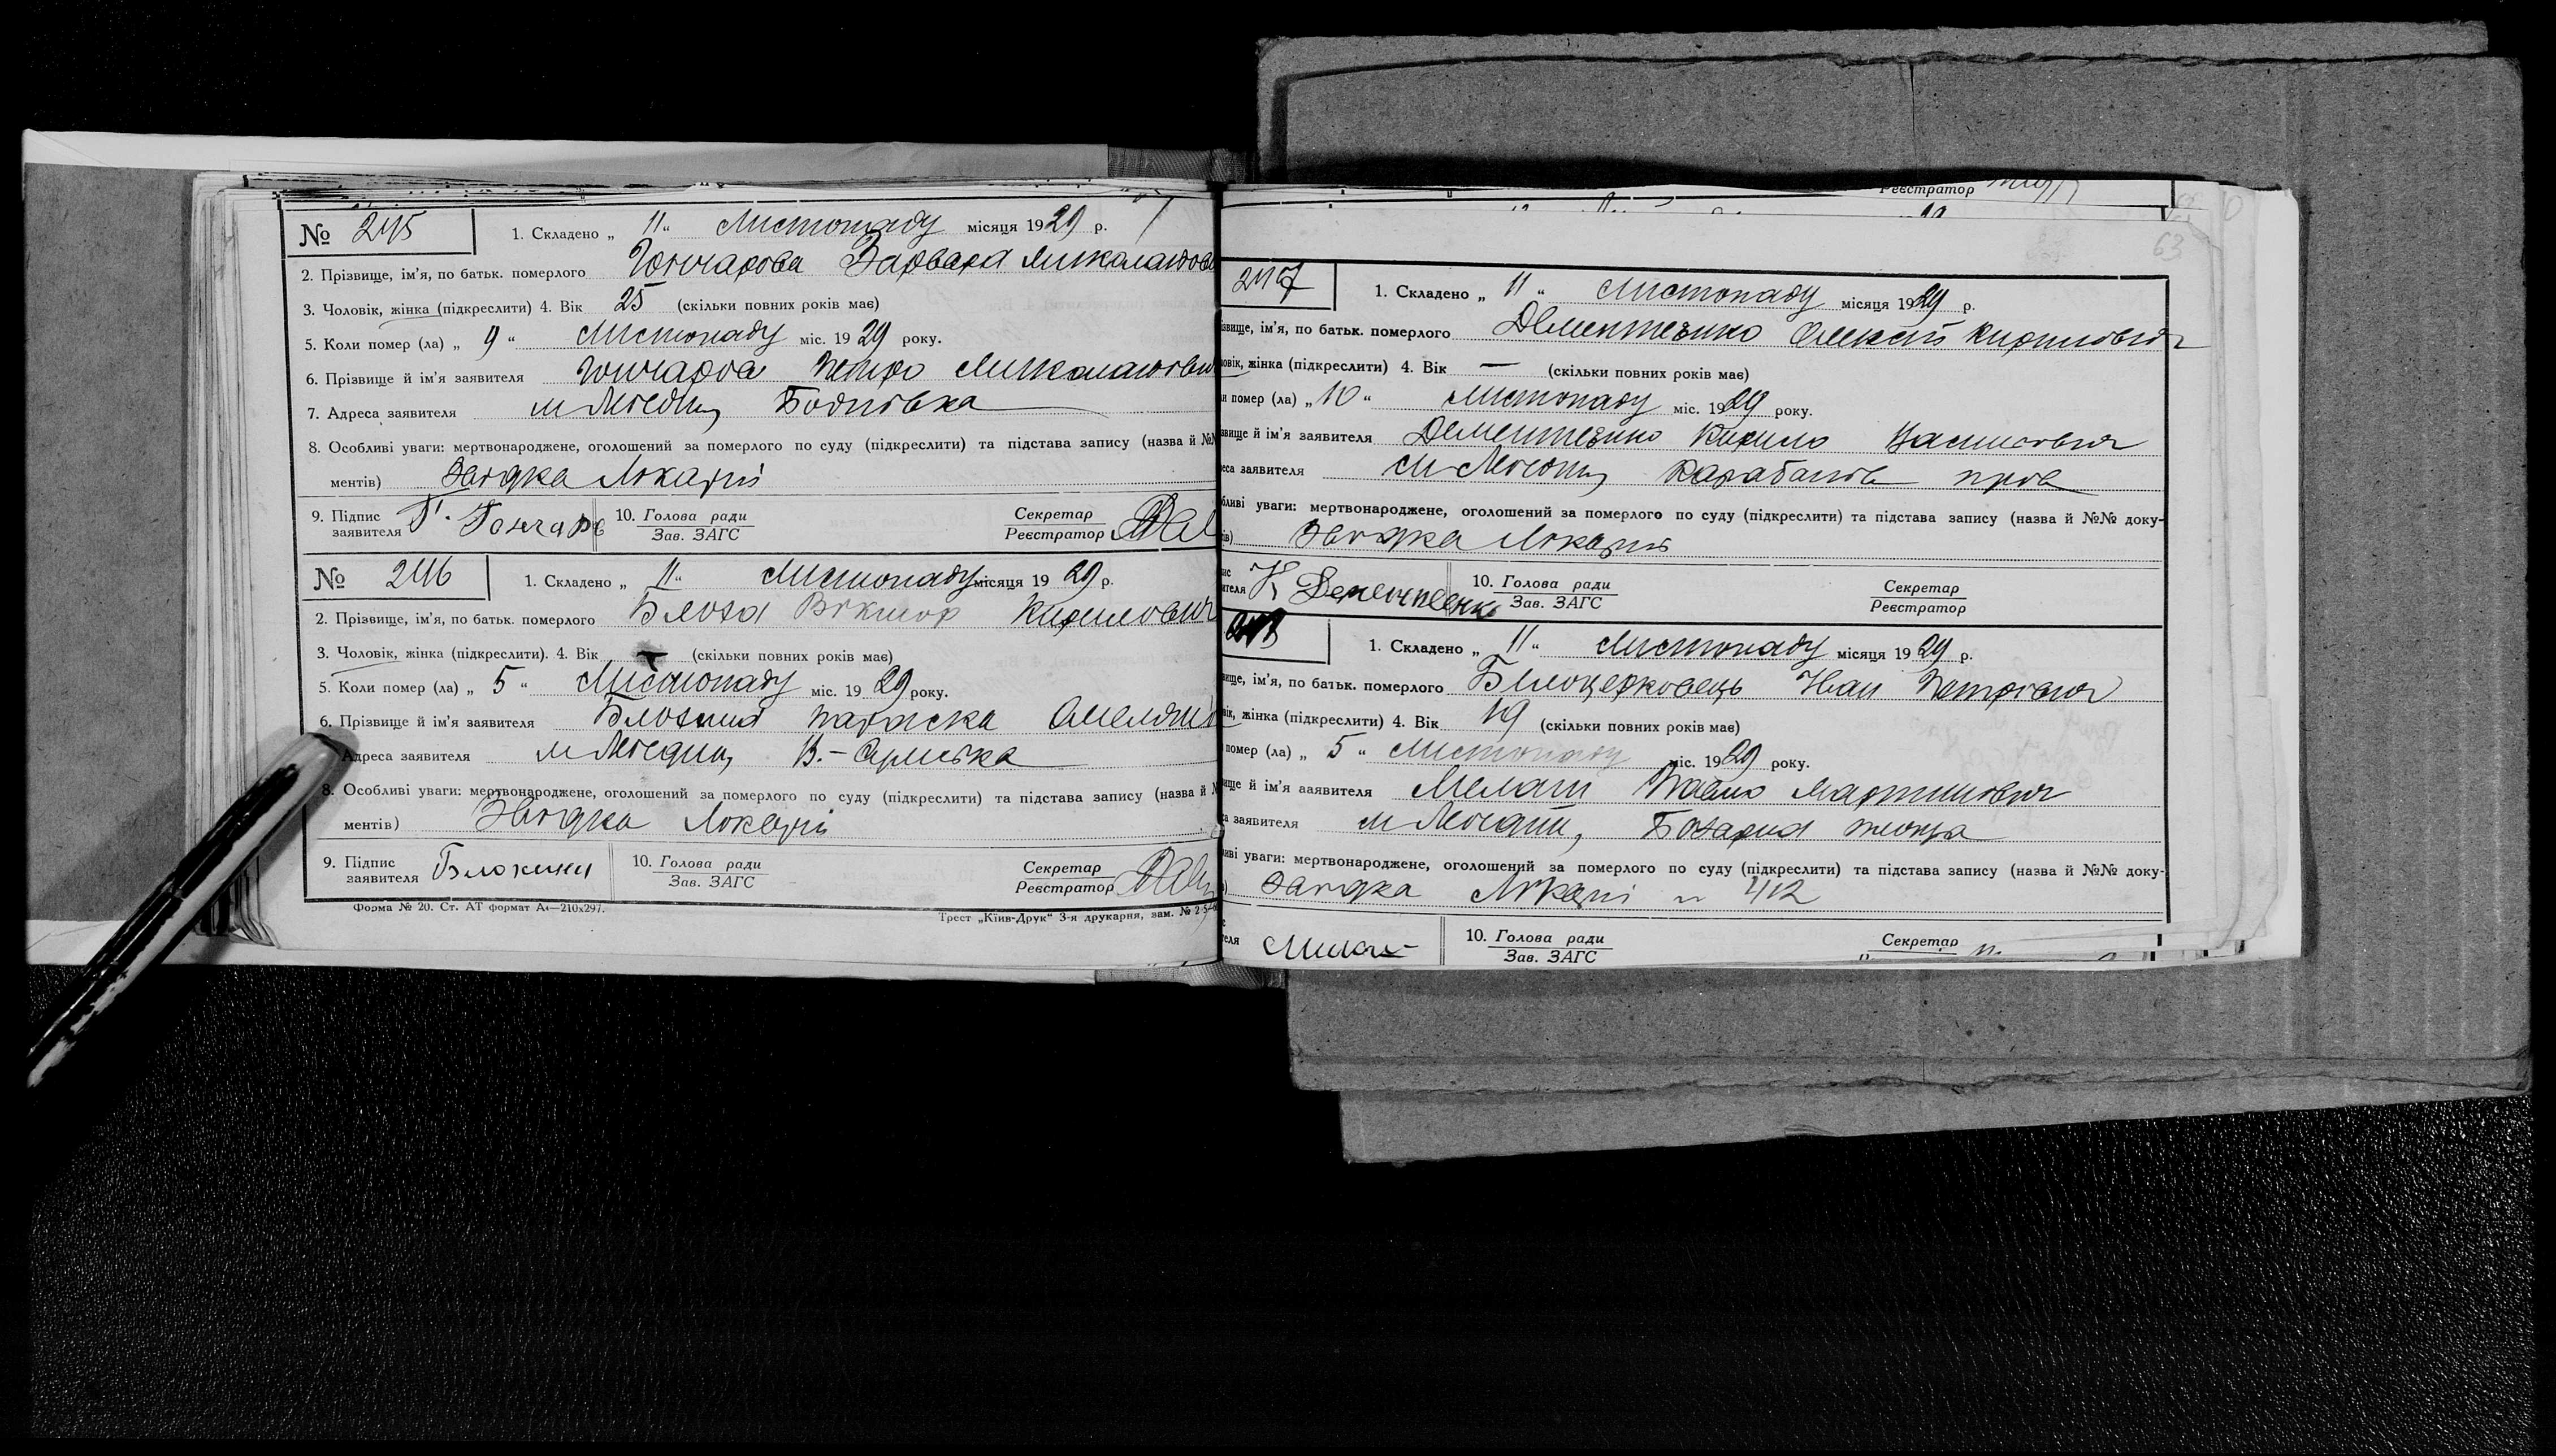 № 245 1. Складено „ 11 “ Листопаду місяця 1929 р.
2. Прізвище, ім'я, по батьк. померлого Гончарова Варвара Миколаївн
3. Чоловік, жінка (підкреслити) 4. Вік 25 (скільки повних років має)
5. Коли помер (ла) „ 9 “ Листопаду міс. 1929 року.
6. Прізвище й ім'я заявителя Гончарова Петро Миколайович
7. Адреса заявителя м
8. Особливі уваги: мертвонароджене, оголошений за померлого по суду (підкреслити) та підстава запису (назва й №№
ментів) Звідка Лікарні
9. Підпис заявителя Г. Гончаров 10. Голова ради Зав. ЗАГС Секретар Реєстратор
№ 246 1. Складено „ 11 “ Листопаду місяця 1929 р.
2. Прізвище, ім'я, по батьк. померлого Блоха Віктор Кирилович
3. Чоловік, жінка (підкреслити). 4. Вік — (скільки повних років має)
5. Коли помер (ла) „ 5 “ Листопаду міс. 1929 року.
6. Прізвище й ім'я заявителя Параска
Адреса заявителя м
8. Особливі уваги: мертвонароджене, оголошений за померлого по суду (підкреслити) та підстава запису (назва й №
ментів) Звідка Лікарні
9. Підпис заявителя 10. Голова ради Зав. ЗАГС Секретар Реєстратор
Форма № 20. Ст. АТ формат А4—210x297. Трест „Київ-Друк“ 3-я друкарня, зам. №
Реєстратор
63
247 1. Складено „ 11 “ Листопаду місяця 1929 р.
звище, ім'я, по батьк. померлого Дементієнко Олексій Кирилович
овік, жінка (підкреслити) 4. Вік — (скільки повних років має)
и помер (ла) „ 10 “ Листопаду міс. 1929 року.
звище й ім'я заявителя Дементієнко Кирило Васильович
еса заявителя м
бливі уваги: мертвонароджене, оголошений за померлого по суду (підкреслити) та підстава запису (назва й №№ доку-
ів) Звідка Лікарні
ис ителя К Дементеенко 10. Голова ради Зав. ЗАГС Секретар Реєстратор
248 1. Складено „ 11 “ Листопаду місяця 1929 р.
вище, ім'я, по батьк. померлого Білоцерковець Іван Петрович
вік, жінка (підкреслити) 4. Вік 19 (скільки повних років має)
помер (ла) „ 5 “ Листопаду міс. 1929 року.
ище й ім'я заявителя Павло Мартинович
а заявителя м
иві уваги: мертвонароджене, оголошений за померлого по суду (підкреслити) та підстава запису (назва й №№ доку-
) Звідка Лікарні 412
теля 10. Голова ради Зав. ЗАГС Секретар